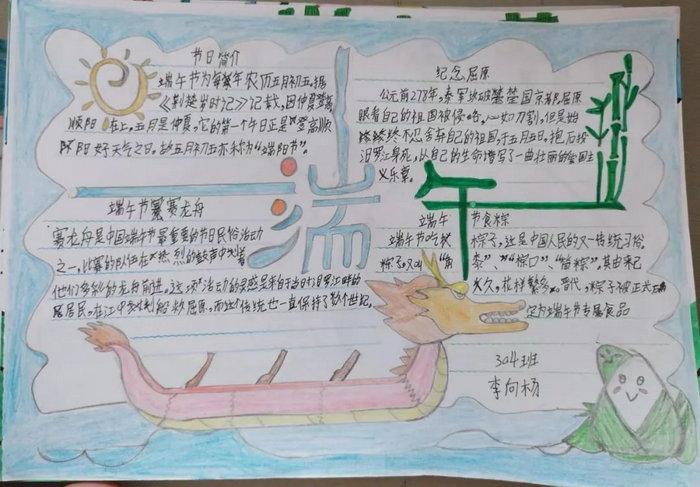 节日简介
端午节为每年农历五月初五,据
《荆楚岁时记》记载,因仲夏登高
顺阳在上,五月是仲夏,它的第一个午日正是登高顺
阳好天气之日,故五月初五亦称为“端阳节”。
纪念屈原
公元前278年,秦军攻破楚国京都屈原
眼看自己的祖国被侵略,心如刀割,但是始
终不忍舍弃自己的祖国于五月五日,抱石投
汨罗江身死,以自己的生命谱写了一曲壮丽的爱国主
义乐章。
端午
端午节赛龙舟
赛龙舟是中国端午节最重要的节日民俗活动
之一,比赛的队伍在热烈的鼓声中
他们多彩的龙舟前进,这项活动的灵感来自于当日汨罗江畔的
居民,在江中划船救屈原,而这个传统也一直保持了数个世纪。
端午节食粽
端午节吃粽子,这是中国人民的又一传统习俗,
粽子,又叫“角黍”、“粽口”、“笛粽”。其由来已
久,花样繁多。晋代,粽子被正式
定为端午节专属食品
304班
李向杨